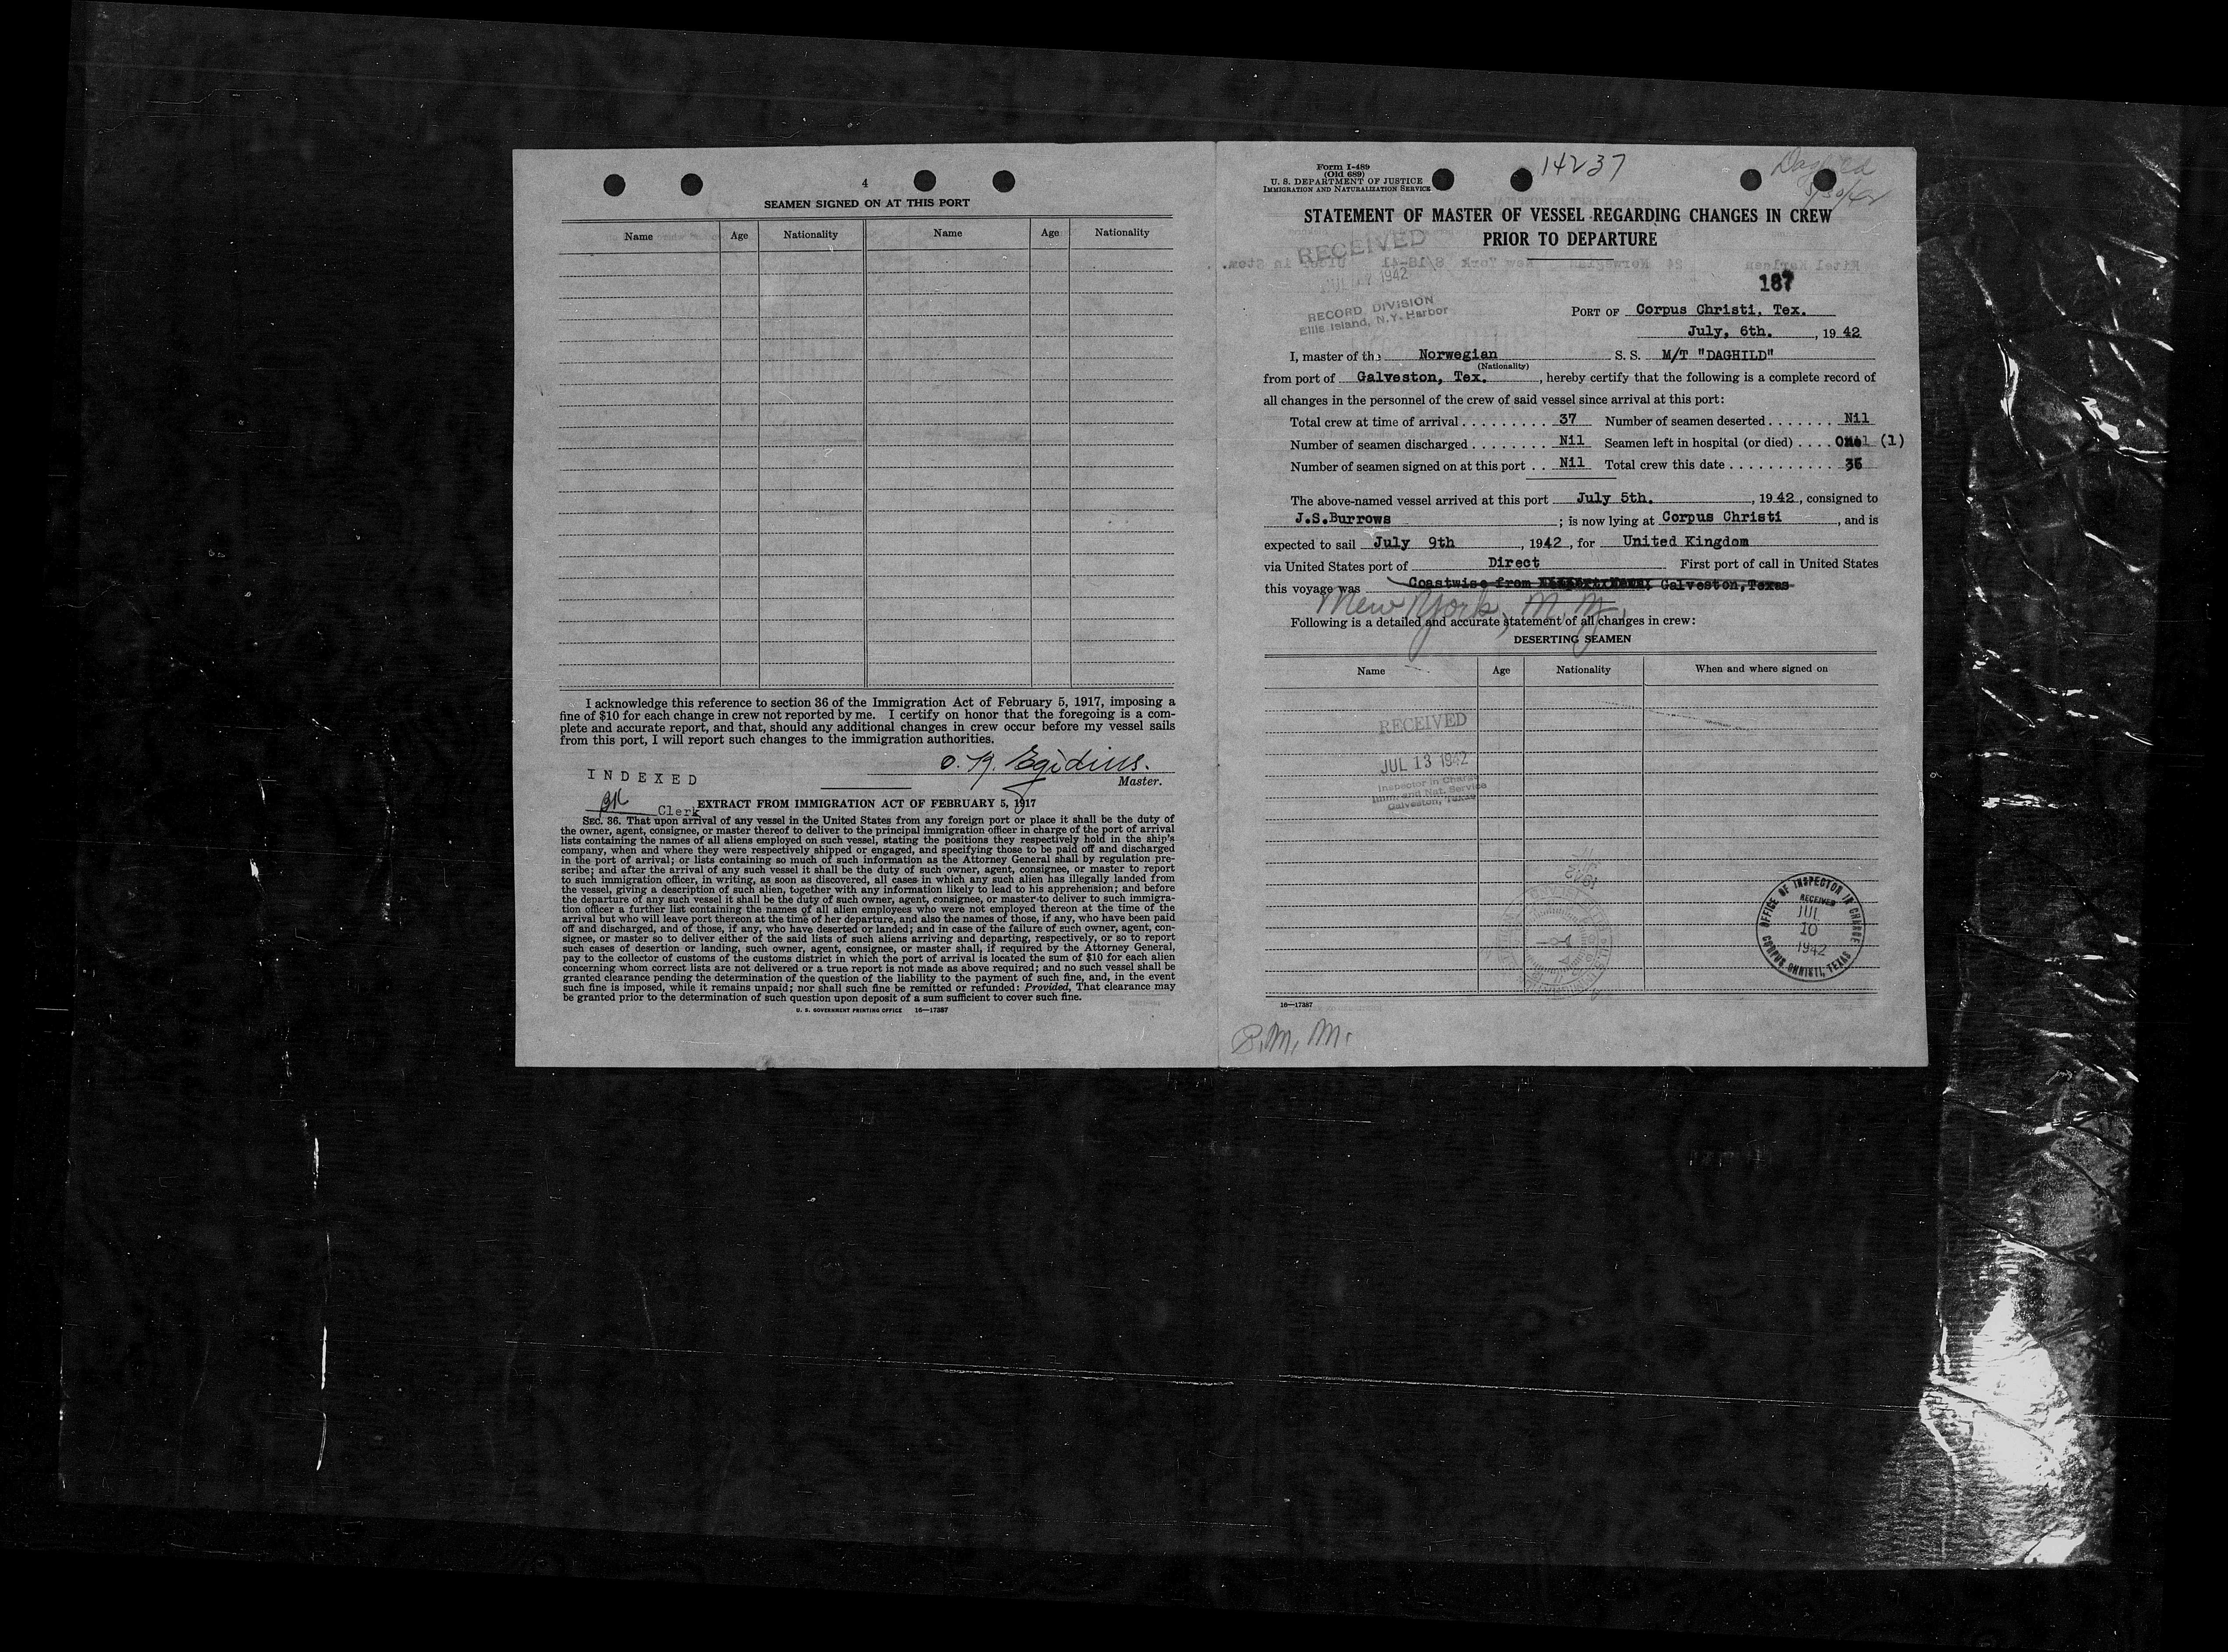 4
SEAMEN SIGNED ON AT THIS PORT
Name Age Nationality Name Age Nationality
I acknowledge this reference to section 36 of the Immigration Act of February 5, 1917, imposing a
fine of $10 for each change in crew not reported by me. I certify on honor that the foregoing is a com-
plete and accurate report, and that, should any additional changes in crew occur before my vessel sails
from this port, I will report such changes to the immigration authorities.
Egidius.
Master.
INDEXED
Clerk
EXTRACT FROM IMMIGRATION ACT OF FEBRUARY 5, 1917
SEC. 36. That upon arrival of any vessel in the United States from any foreign port or place it shall be the duty of
the owner, agent, consignee, or master thereof to deliver to the principal immigration officer in charge of the port of arrival
lists containing the names of all aliens employed on such vessel, stating the positions they respectively hold in the ship's
company, when and where they were respectively shipped or engaged, and specifying those to be paid off and discharged
in the port of arrival; or lists containing so much of such information as the Attorney General shall by regulation pre-
scribe; and after the arrival of any such vessel it shall be the duty of such owner, agent, consignee, or master to report
to such immigration officer, in writing, as soon as discovered, all cases in which any such alien has illegally landed from
the vessel, giving a description of such alien, together with any information likely to lead to his apprehension; and before
the departure of any such vessel it shall be the duty of such owner, agent, consignee, or master to deliver to such immigra-
tion officer a further list containing the names of all alien employees who were not employed thereon at the time of the
arrival but who will leave port thereon at the time of her departure, and also the names of those, if any, who have been paid
off and discharged, and of those, if any, who have deserted or landed; and in case of the failure of such owner, agent, con-
signee, or master so to deliver either of the said lists of such aliens arriving and departing, respectively, or so to report
such cases of desertion or landing, such owner, agent, consignee, or master shall, if required by the Attorney General,
pay to the collector of customs of the customs district in which the port of arrival is located the sum of $10 for each alien
concerning whom correct lists are not delivered or a true report is not made as above required; and no such vessel shall be
granted clearance pending the determination of the question of the liability to the payment of such fine, and, in the event
such fine is imposed, while it remains unpaid; nor shall such fine be remitted or refunded: Provided, That clearance may
be granted prior to the determination of such question upon deposit of a sum sufficient to cover such fine.
U. S. GOVERNMENT PRINTING OFFICE 16—17387
Form I-489
(Old 689)
U. S. DEPARTMENT OF JUSTICE
IMMIGRATION AND NATURALIZATION SERVICE
14237
STATEMENT OF MASTER OF VESSEL REGARDING CHANGES IN CREW
PRIOR TO DEPARTURE
RECEIVED
1942
RECORD DIVISION
Ellis Island, N.Y. Harbor
187
PORT OF Corpus Christi, Tex.
July, 6th. , 19 42
I, master of the Norwegian S. S. M/T "DAGHILD"
(Nationality)
from port of Galveston, Tex. , hereby certify that the following is a complete record of
all changes in the personnel of the crew of said vessel since arrival at this port:
Total crew at time of arrival 37 Number of seamen deserted Nil
Number of seamen discharged Nil Seamen left in hospital (or died) (1)
Number of seamen signed on at this port Nil Total crew this date 36
The above-named vessel arrived at this port July 5th. , 1942 , consigned to
J.S.Burrows ; is now lying at Corpus Christi , and is
expected to sail July 9th , 1942 , for United Kingdom
via United States port of Direct First port of call in United States
this voyage was Coastwise from Galveston,Texas
New York, N.Y.
Following is a detailed and accurate statement of all changes in crew:
DESERTING SEAMEN
Name Age Nationality When and where signed on
RECEIVED
JUL 13 1942
Inspector in Charge
Imm. and Nat. Service
Galveston, Texas
OFFICE OF INSPECTOR IN CHARGE
RECEIVED
JUL
10
1942
CORPUS CHRISTI, TEXAS
16—17387